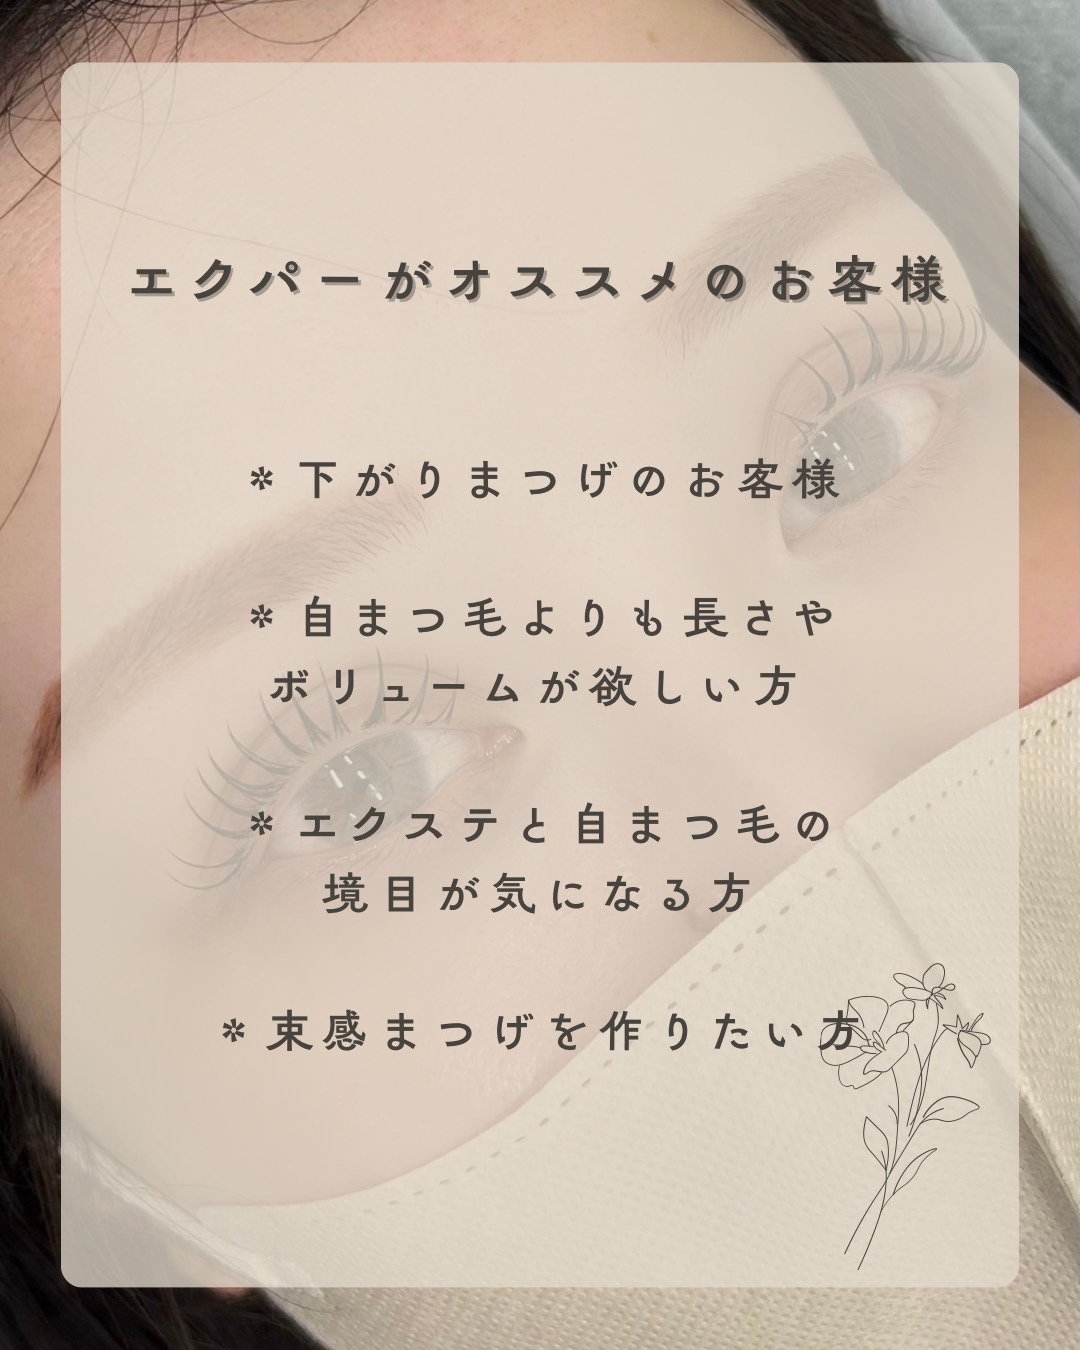 エクパーがオススメのお客様
* 下がりまつげのお客様
* 自まつ毛よりも長さや
ボリュームが欲しい方
* エクステと自まつ毛の
境目が気になる方
* 束感まつげを作りたい方